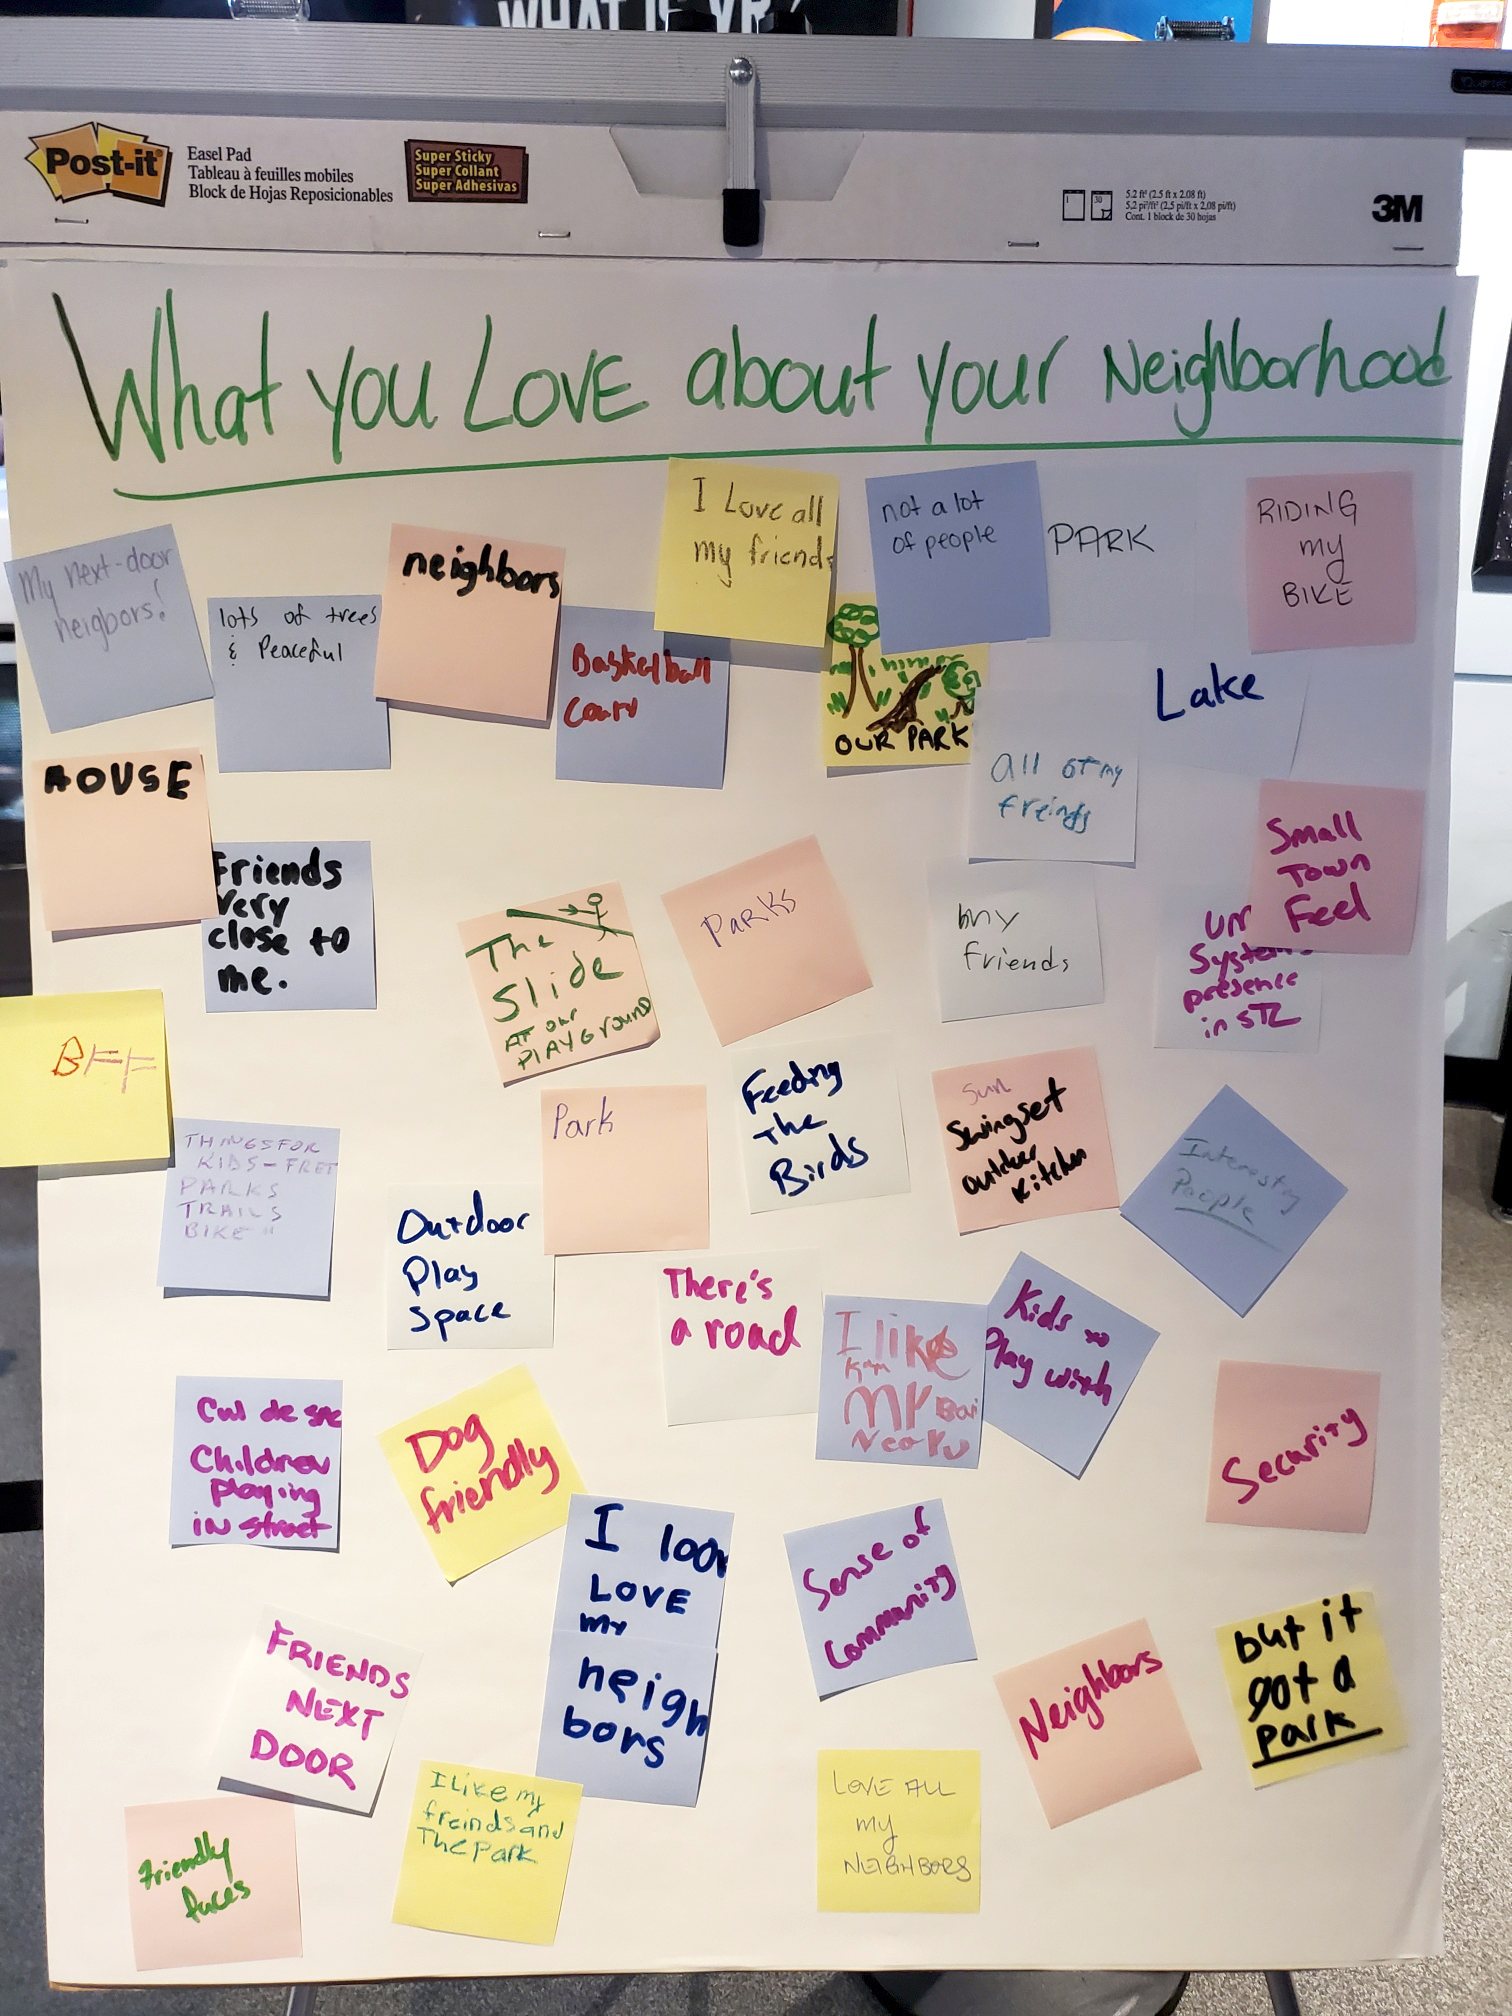 WHAT IS VR?
Post-it
Easel Pad
Tableau à feuilles mobiles
Block de Hojas Reposicionables
Super Sticky
Super Collant
Super Adhesivas
5.2 ft² (2.5 ft x 2.08 ft)
5,2 pi²/ft² (2,5 pi/ft x 2,08 pi/ft)
Cont. 1 block de 30 hojas
3M
What you LOVE about your Neighborhood
My next-door
neigbors!
lots of trees
& Peaceful
neighbors
Basketball
I Love all
my friends
not a lot
of people
PARK
RIDING
my
BIKE
OUR PARK
Lake
all of my
HOUSE
Friends
very
close to
me.
The
Slide
AT our
PLAYGROUND
Parks
my
friends
Small
Town
Feel
UN
System's
presence
in STL
BFF
THINGS FOR
KIDS - FREE
PARKS
TRAILS
BIKE "
Outdoor
Play
Space
Park
Feeding
The
Birds
Sun
Swingset
outdoor
Kitchen
People
There's
a road
I like
MY
Kids to
Play with
Security
Cul de sac
Children
playing
in street
Dog
friendly
I
LOVE
my
neigh
bors
Sense of
Community
FRIENDS
NEXT
DOOR
Neighbors
but it
got a
park
Friendly
faces
I Like my
freinds and
The Park
LOVE ALL
my
NEIGHBORS